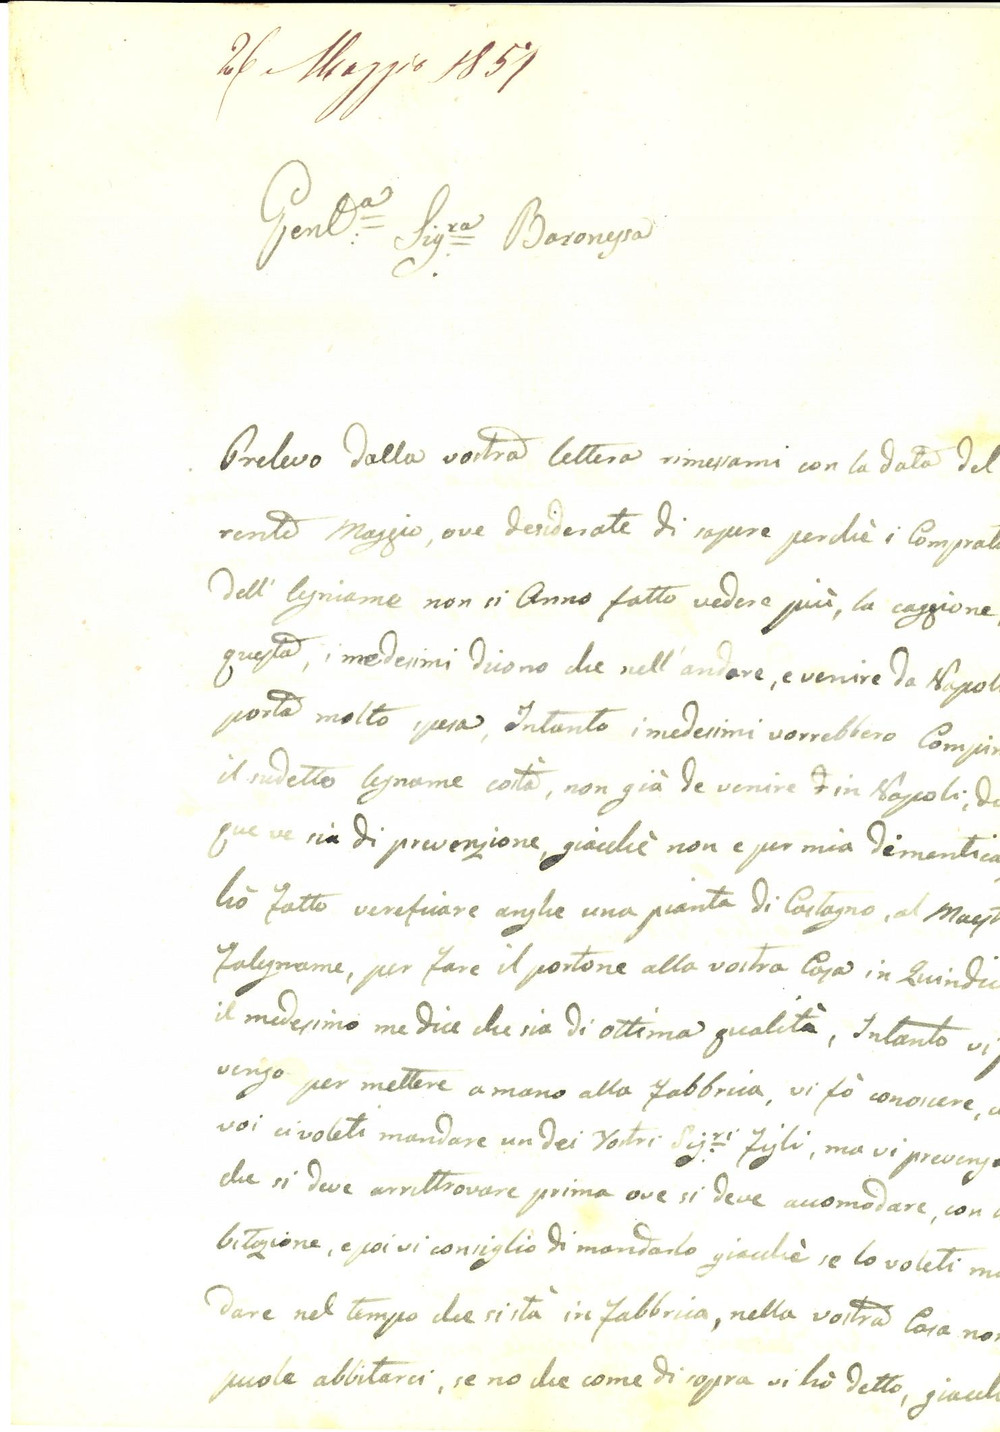 26 Maggio 1857
Gentma Sigra Baronessa
Prelevo dalla vostra lettera rimessami con la data del
rente Maggio, ove desiderate di sapere perchè i Comprat
dell' legniame non si Anno fatto vedere più, la caggione,
questa, i medesimi dicono che nell'andare, e venire da Napoli
porta molto spesa, Intanto i medesimi vorrebbero Compir
il sudetto legname costà, non già de venire in Napoli, d
que ve sia di prevenzione, giacchè non e per mia dementica
hò fatto verificare anghe una pianta di Castagno, al Maest
Falegname, per fare il portone alla vostra Casa in Quindic
il medesimo me dice che sia di ottima qualità, Intanto vi p
vengo per mettere a mano alla fabbrica, vi fò conoscere,
voi ci voleti mandare un dei Vostri Sigri Figli, ma vi prevengo
che si deve arrittrovare prima ove si deve accomodare, con
bitazione, e poi vi consiglio di mandarlo giacchè se lo voleti m
dare nel tempo che si stà in fabbrica, nella vostra Casa non
puole abbitarci, se no che come di sopra vi hò detto, giacch